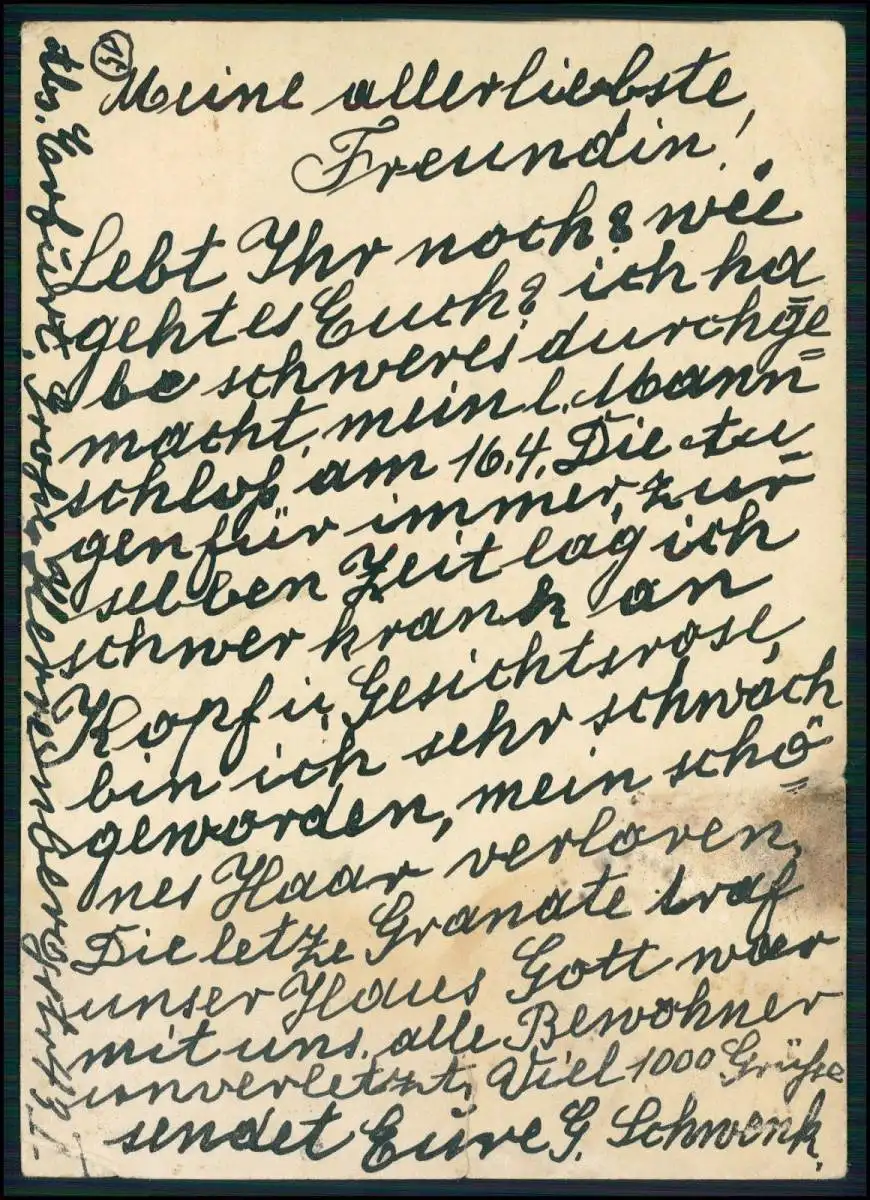 (15)
Meine allerliebste
Freundin!
Lebt Ihr noch? wie
geht es Euch? ich ha
be schweres durchge=
macht, mein l. Mann=
schloß am 16.4. Die Au
gen für immer, zur=
selben Zeit lag ich
schwer krank an
Kopf u. Gesichtsrose,
bin ich sehr schwach
geworden, mein schö=
nes Haar verloren,
Die letze Granate traf
unser Haus Gott war
mit uns, alle Bewohner
unverletzt, Viel 1000 Grühse
sendet Eure G. Schwenk.
Abs. Erfurt, Große Herrenbergstr. 13 I